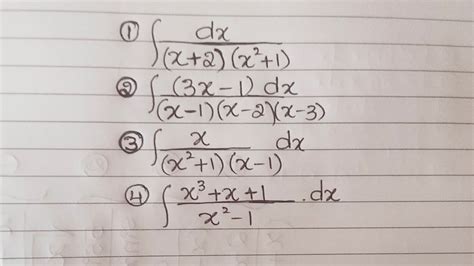 ① ∫ dx / (x+2)(x²+1)
② ∫ (3x-1) dx / (x-1)(x-2)(x-3)
③ ∫ x / (x²+1)(x-1) dx
④ ∫ x³+x+1 / x²-1 .dx